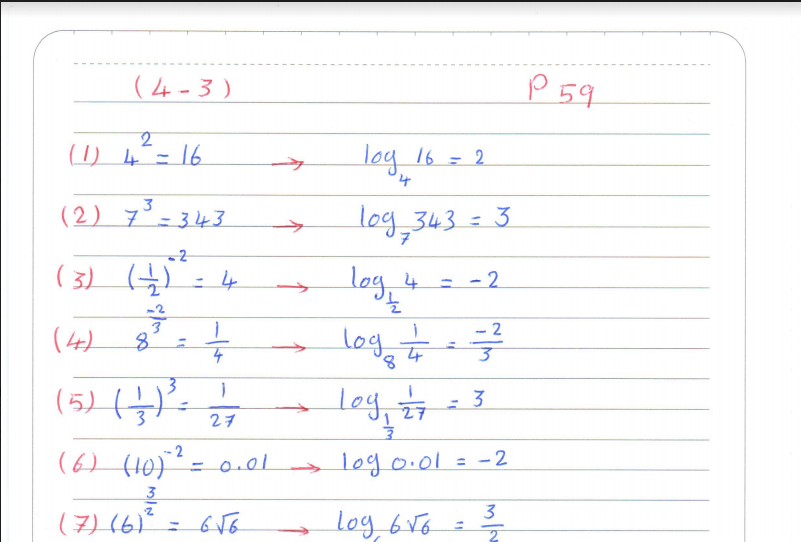 (4-3) P 59
(1) 4² = 16 → log₄ 16 = 2
(2) 7³ = 343 → log₇ 343 = 3
(3) (1/2)⁻² = 4 → log_(1/2) 4 = -2
(4) 8^(-2/3) = 1/4 → log₈ 1/4 = -2/3
(5) (1/3)³ = 1/27 → log_(1/3) 1/27 = 3
(6) (10)⁻² = 0.01 → log 0.01 = -2
(7) (6)^(3/2) = 6√6 → log 6√6 = 3/2